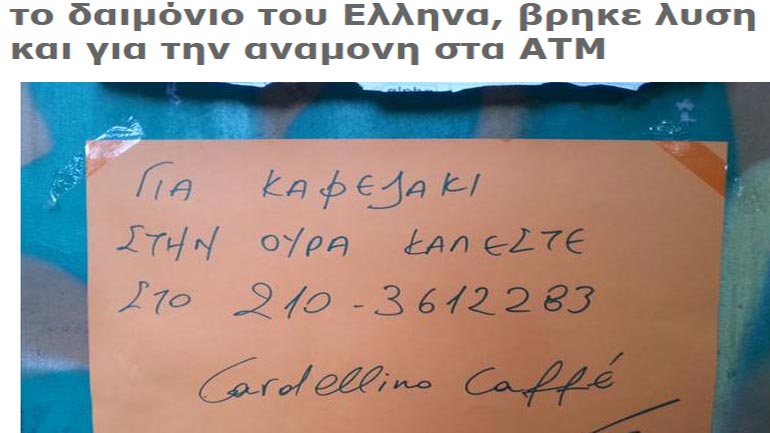 το δαιμόνιο του Ελληνα, βρηκε λυση
και για την αναμονη στα ΑΤΜ
ΓΙΑ ΚΑΦΕΔΑΚΙ
ΣΤΗΝ ΟΥΡΑ ΚΑΛΕΣΤΕ
ΣΤΟ 210-3612283
Cardellino Caffé